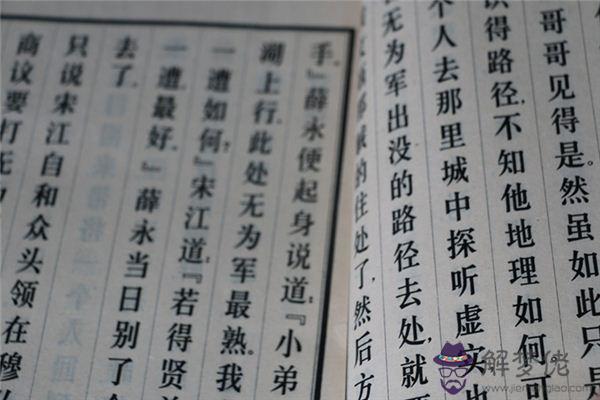 哥哥见得是。然虽如此只是
得路径，不知他地理如何可
个人去那里城中探听虚实
无为军出没的路径去处，就要
的住处了，然后方
手。』薛永便起身说道：『小弟
湖上行。此处无为军最熟。我
一遭如何？』宋江道：『若得贤
一遭最好。』薛永当日别了
去了。
只说宋江自和众头领在穆
商议要打无
解梦佬
www.jiemenglao.com